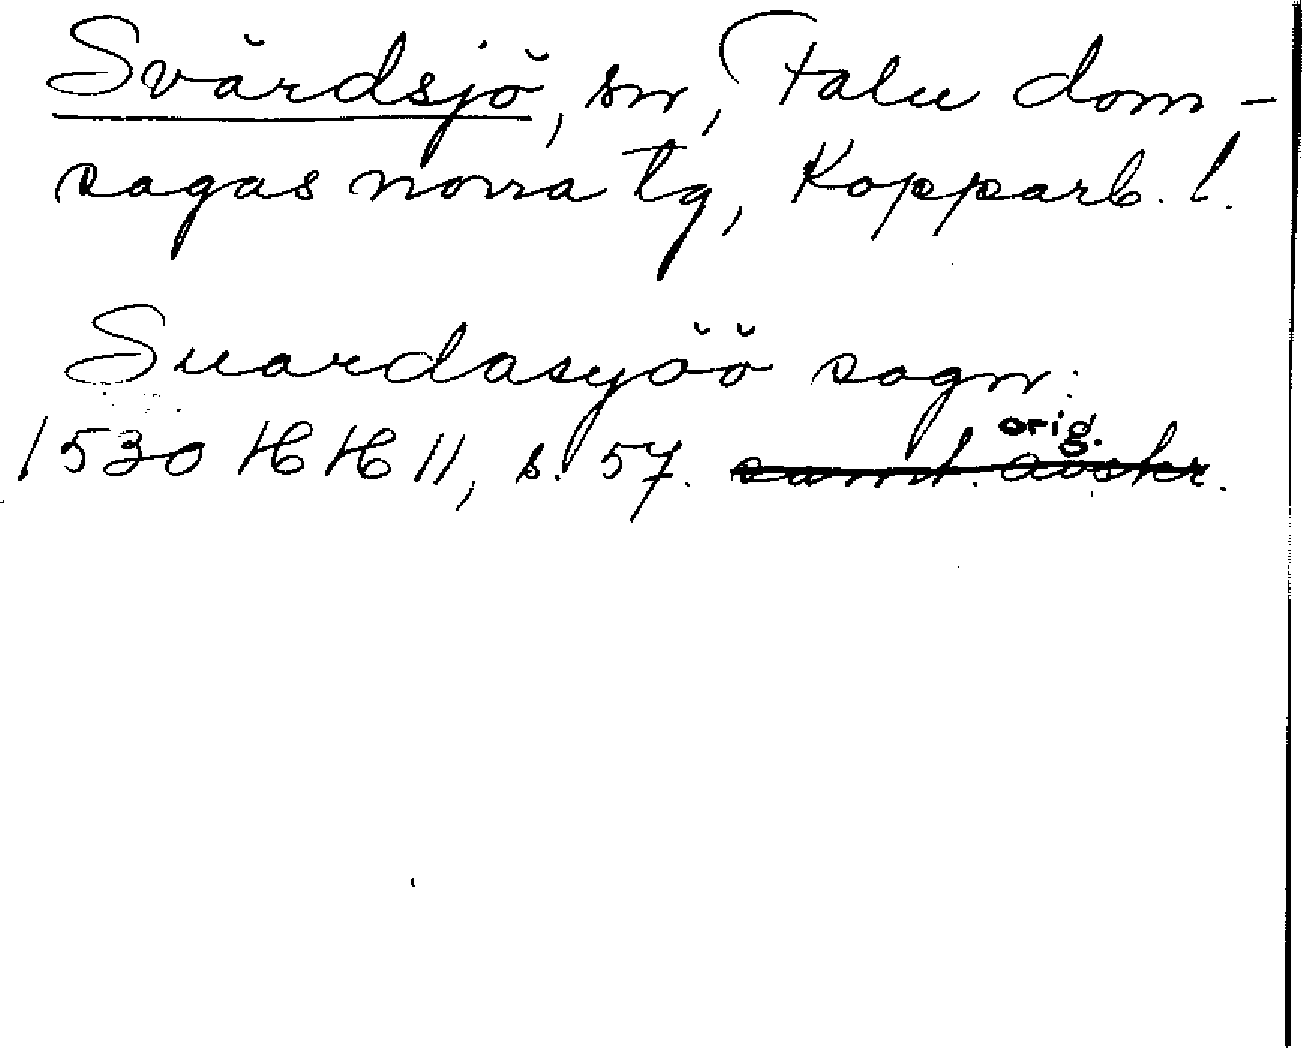 Svärdsjö, sn, Falu dom-
sagas norra tg, Kopparb. l.
Suardasyöö sogn:
1530 HH 11, s. 57. orig.
samt. avskr.